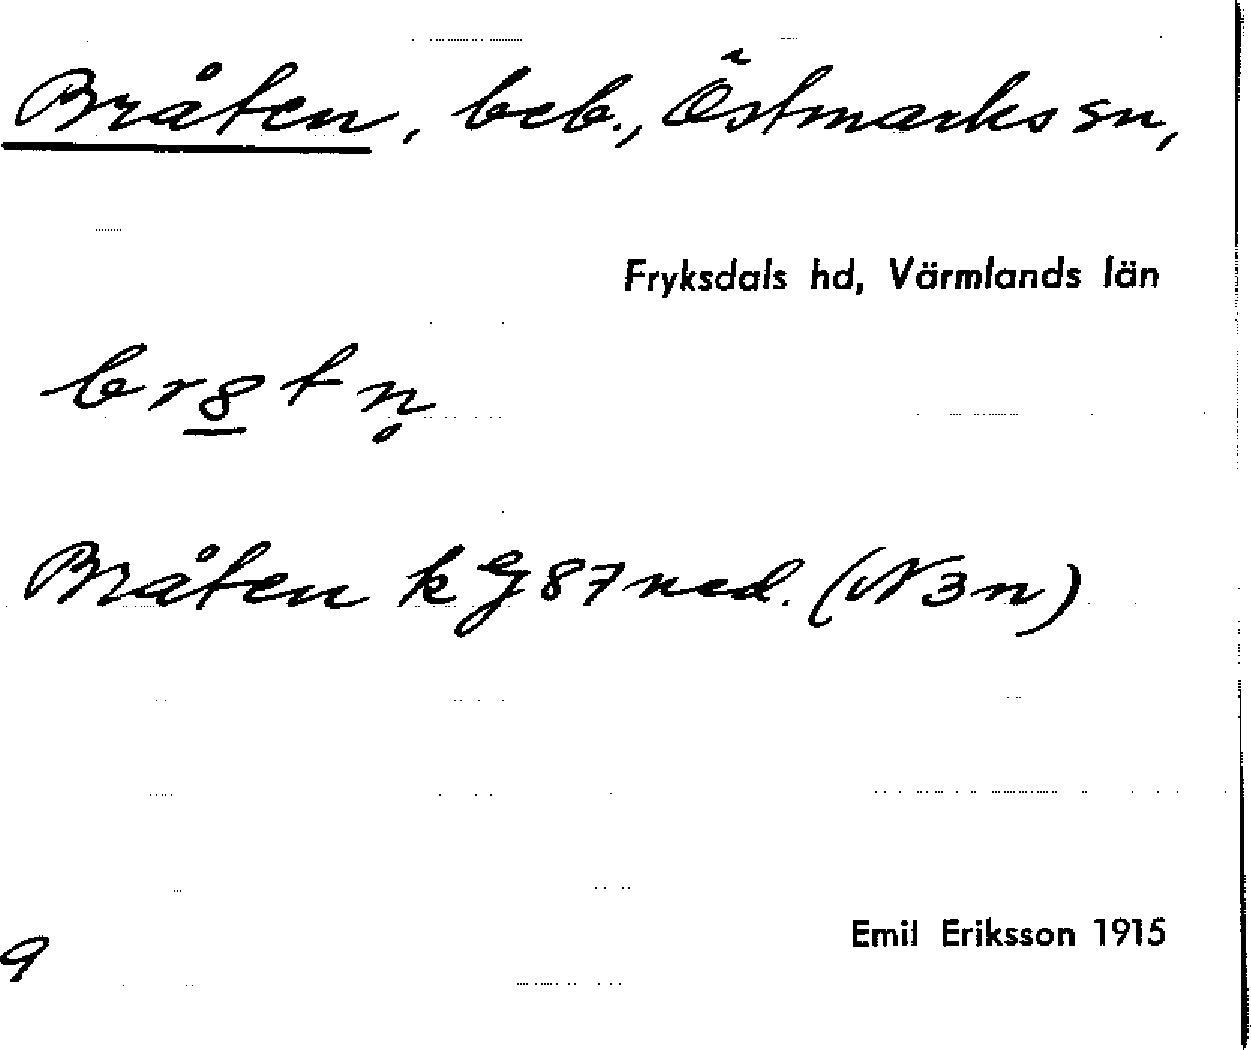 Bråten, beb., Östmarks sn,
Fryksdals hd, Värmlands län
br8tn̥
Bråten k EJ 87 ned. (N3n)
Emil Eriksson 1915
9